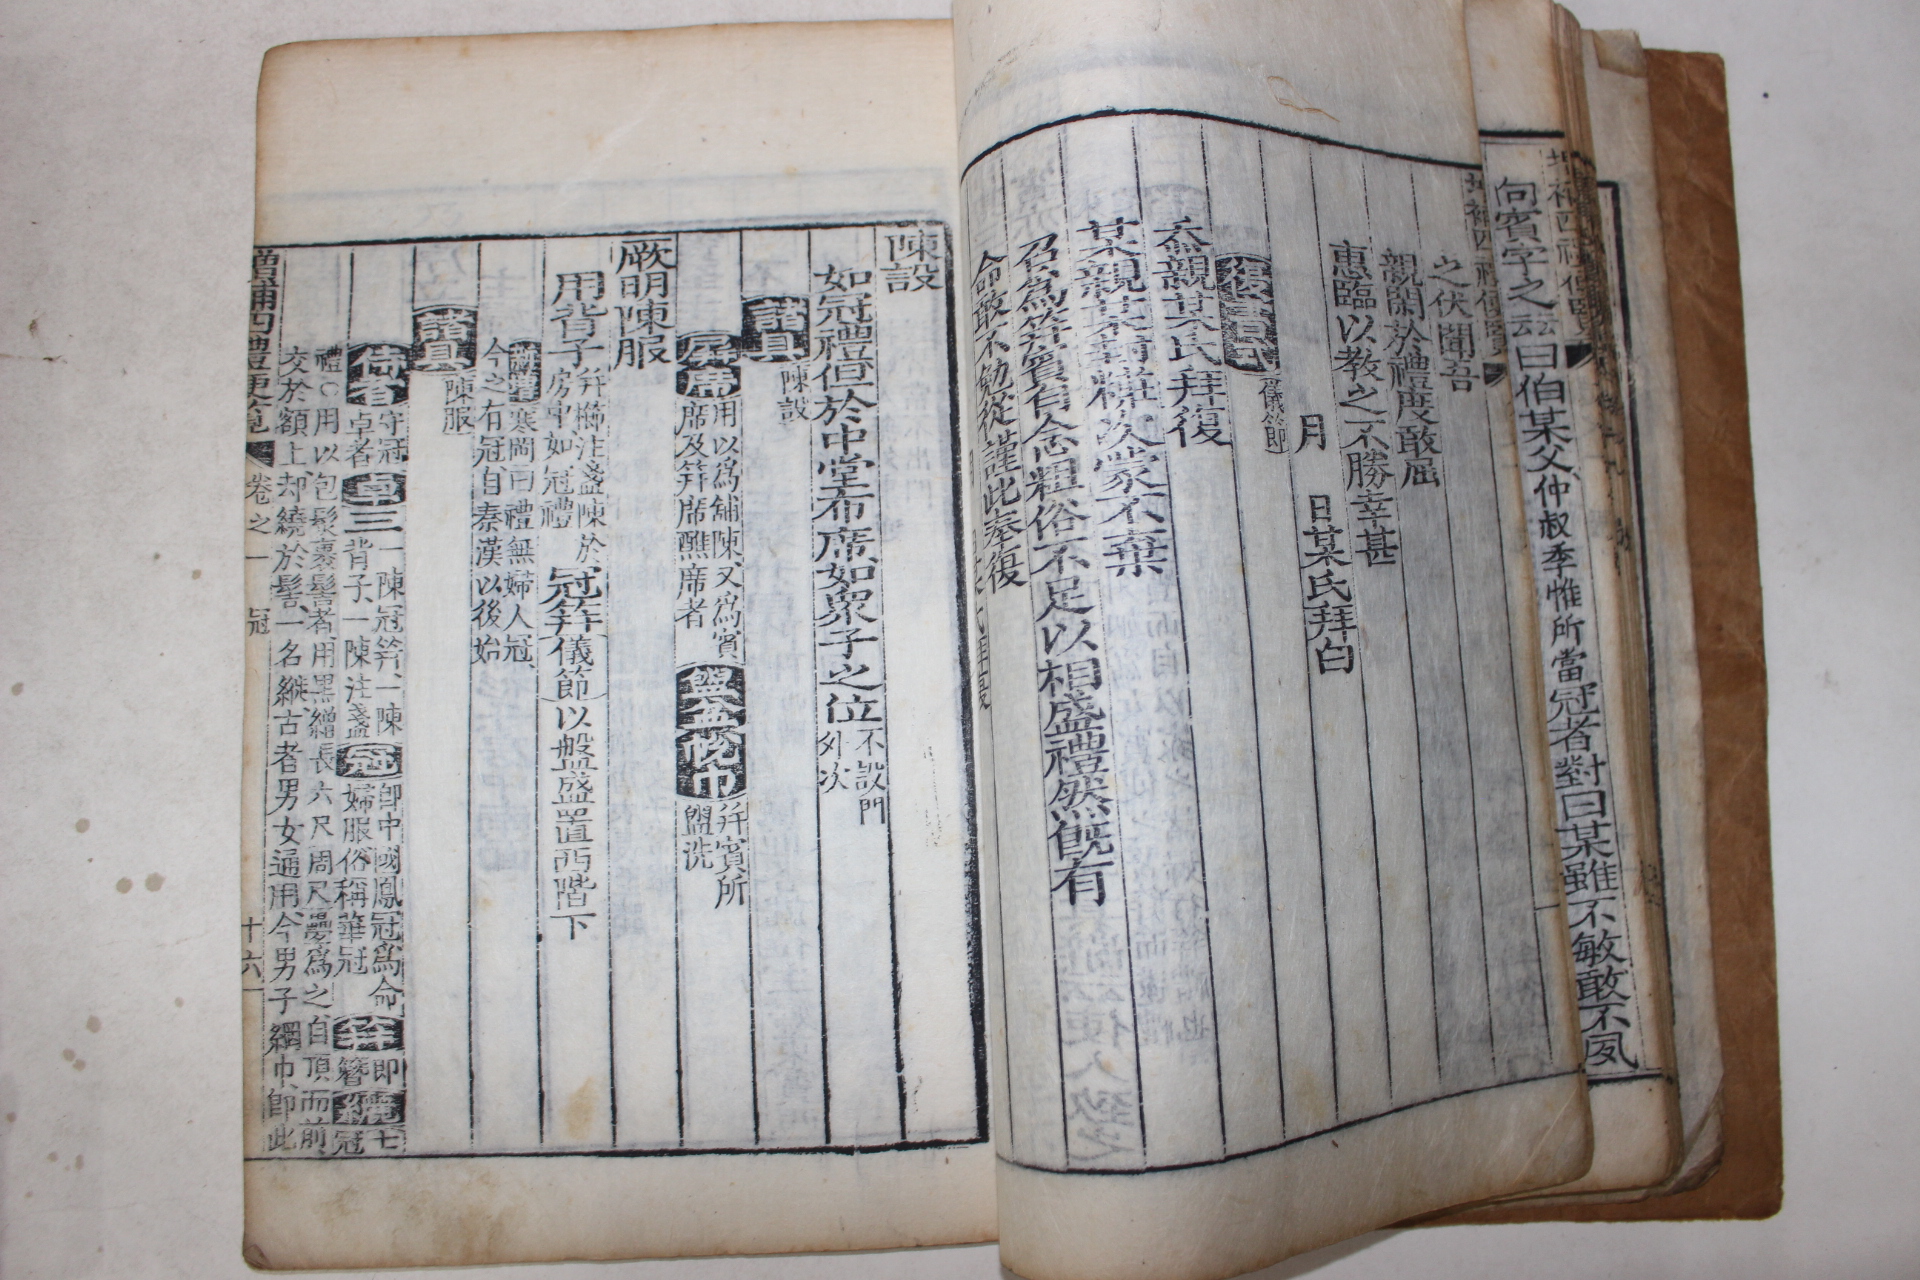 向賓字之云曰伯某父仲叔季惟所當冠者對曰某雖不敏敢不夙
之伏聞吾
親閑於禮度敢屈
惠臨以教之不勝幸甚
月　　日某氏拜白
復書式 儀節
忝親某氏拜復
某親某封粧次蒙不棄
召爲筓賓自念粗俗不足以相盛禮然旣有
命敢不勉從謹此奉復
陳設
如冠禮但於中堂布席如衆子之位 不設門
外次
諸具 陳設
屛席 用以爲舖陳又爲賓
席及筓席醮席者
盥盆帨巾 幷賓所
盥洗
厥明陳服
用背子 幷櫛注盞陳於
房中如冠禮
冠筓 儀節 以盤盛置西階下
寒岡曰禮無婦人冠
今之有冠自秦漢以後始
諸具 陳服
侍者 守冠
卓者
卓三 一陳冠筓一陳
背子一陳注盞
冠 卽中國鳳冠爲命
婦服俗稱華冠
筓 卽
簪
纚 士
冠
禮○用以包髮裹髻者用黑繒長六尺周尺爲之自頂而前
交於額上却繞於髻一名縰古者男女通用今男子網巾卽此
增補四禮便覽 卷之一 冠 十六